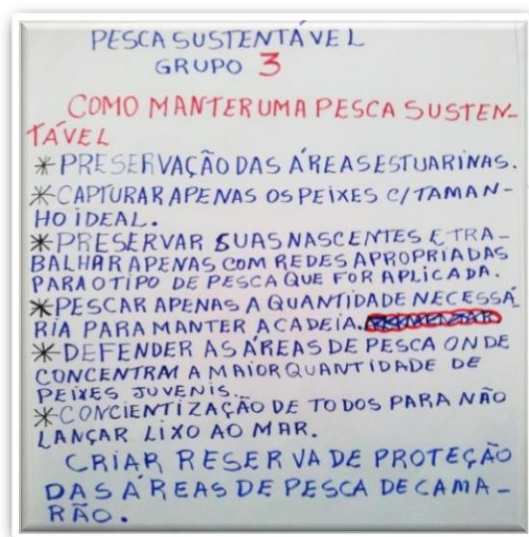 PESCA SUSTENTÁVEL
GRUPO 3
COMO MANTER UMA PESCA SUSTEN-
TÁVEL
* PRESERVAÇÃO DAS ÁREAS ESTUARINAS.
* CAPTURAR APENAS OS PEIXES C/TAMAN-
HO IDEAL.
* PRESERVAR SUAS NASCENTES E TRA-
BALHAR APENAS COM REDES APROPRIADAS
PARA O TIPO DE PESCA QUE FOR APLICADA.
* PESCAR APENAS A QUANTIDADE NECESSÁ
RIA PARA MANTER A CADEIA.
* DEFENDER AS ÁREAS DE PESCA ONDE
CONCENTRA A MAIOR QUANTIDADE DE
PEIXES JUVENIS.
* CONCIENTIZAÇÃO DE TODOS PARA NÃO
LANÇAR LIXO AO MAR.
CRIAR RESERVA DE PROTEÇÃO
DAS ÁREAS DE PESCA DE CAMA-
RÃO.